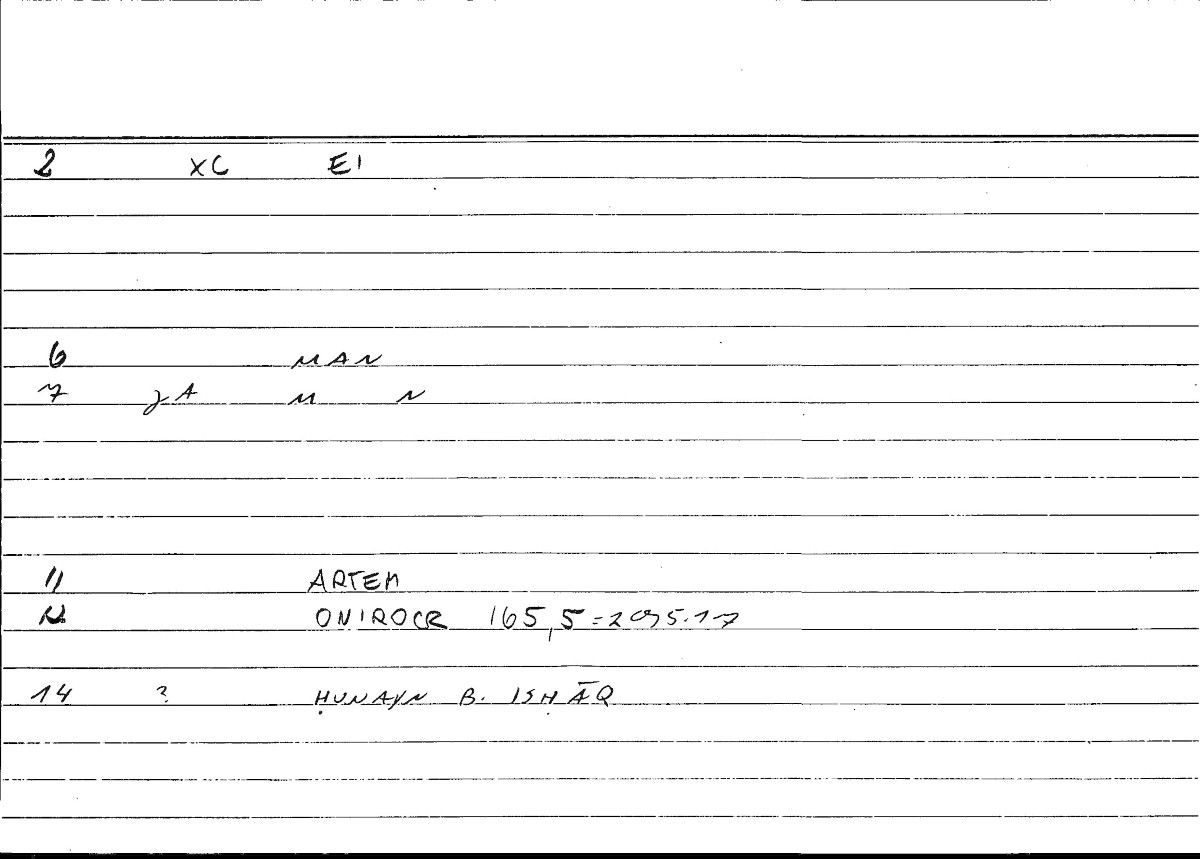 2 XC EI
6 MAN
7 JA M N
11 ARTEM
12 ONIROCR 165,5=295.1-7
14 ? ḤUNAYN B. ISḤĀQ